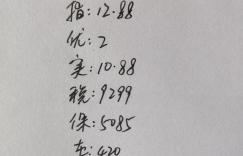 指: 12.88
优: 2
实: 10.88
税: 9299
保: 5085
车: 420